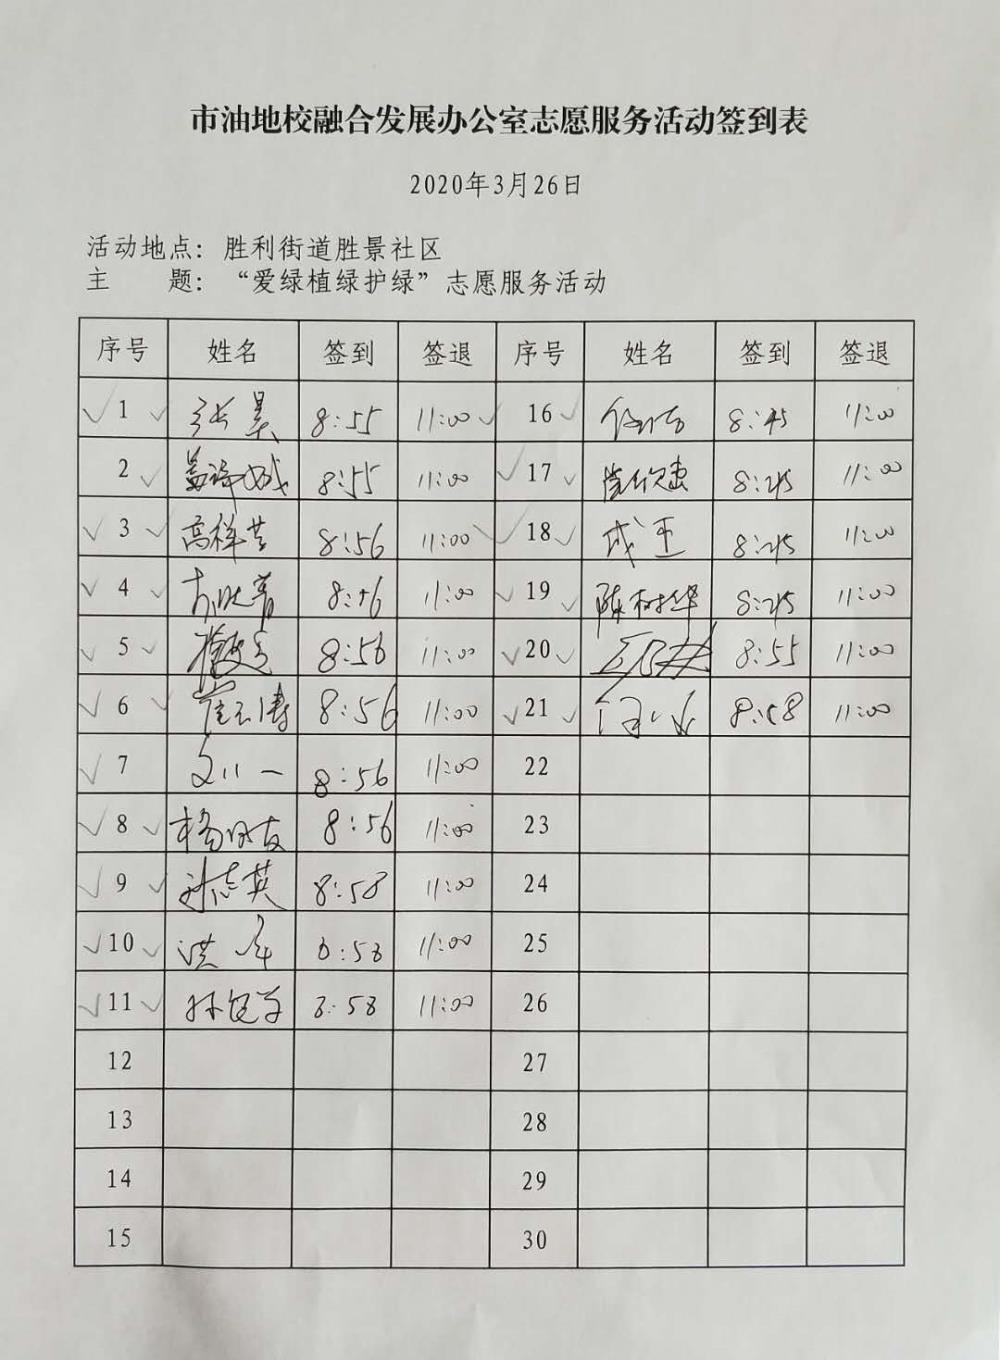 市油地校融合发展办公室志愿服务活动签到表
2020年3月26日
活动地点：胜利街道胜景社区
主　　题：“爱绿植绿护绿”志愿服务活动
序号 姓名 签到 签退 序号 姓名 签到 签退
1 张昊 8:55 11:00 16 8:45 11:00
2 8:55 11:00 17 8:45 11:00
3 高祥 8:56 11:00 18 成玉 8:45 11:00
4 8:56 11:00 19 陈树华 8:45 11:00
5 8:56 11:00 20 8:55 11:00
6 崔玉涛 8:56 11:00 21 8:58 11:00
7 8:56 11:00 22
8 杨 友 8:56 11:00 23
9 孙志英 8:58 11:00 24
10 洪军 8:58 11:00 25
11 8:58 11:00 26
12 27
13 28
14 29
15 30